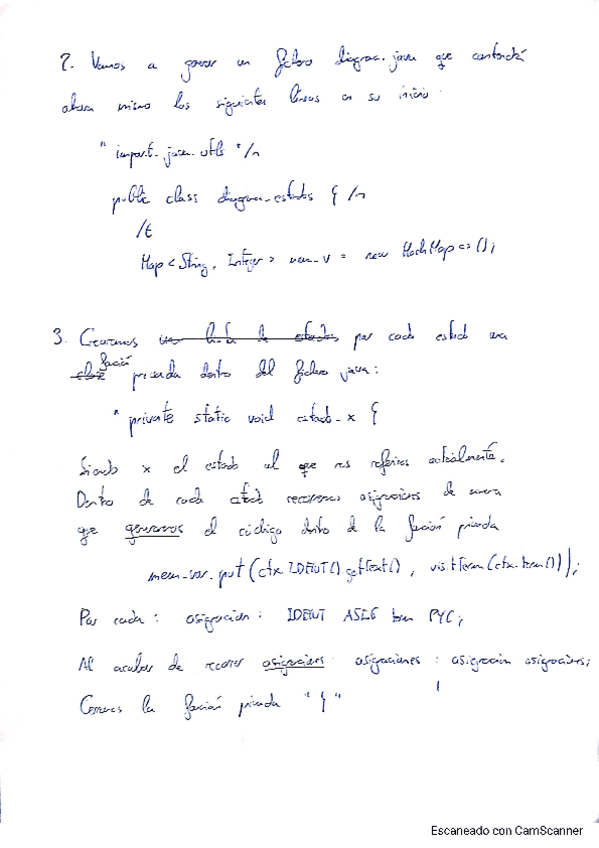 2. Vamos a generar un fichero diagrac.java que contendrá
ahora mismo las siguientes líneas en su inicio
" import java.utils */n
public class diagram_estados { /n
/t
Map<String, Integer> mem_v = new HashMap<>();
3. Creamos una lista de estados por cada estado una
clase función privada dentro del fichero java:
" private static void estado_x {
Siendo x el estado al que nos referimos actualmente.
Dentro de cada estado recorremos asignaciones de manera
que generamos el código dentro de la función privada
mem_var.put(ctx.IDENT().getText(), visitTerm(ctx.term()));
Por cada: asignacion: IDENT ASIG term PYC;
Al acabar de recorrer asignaciones asignaciones: asignacion asignaciones;
Cerramos la función privada "}"
Escaneado con CamScanner